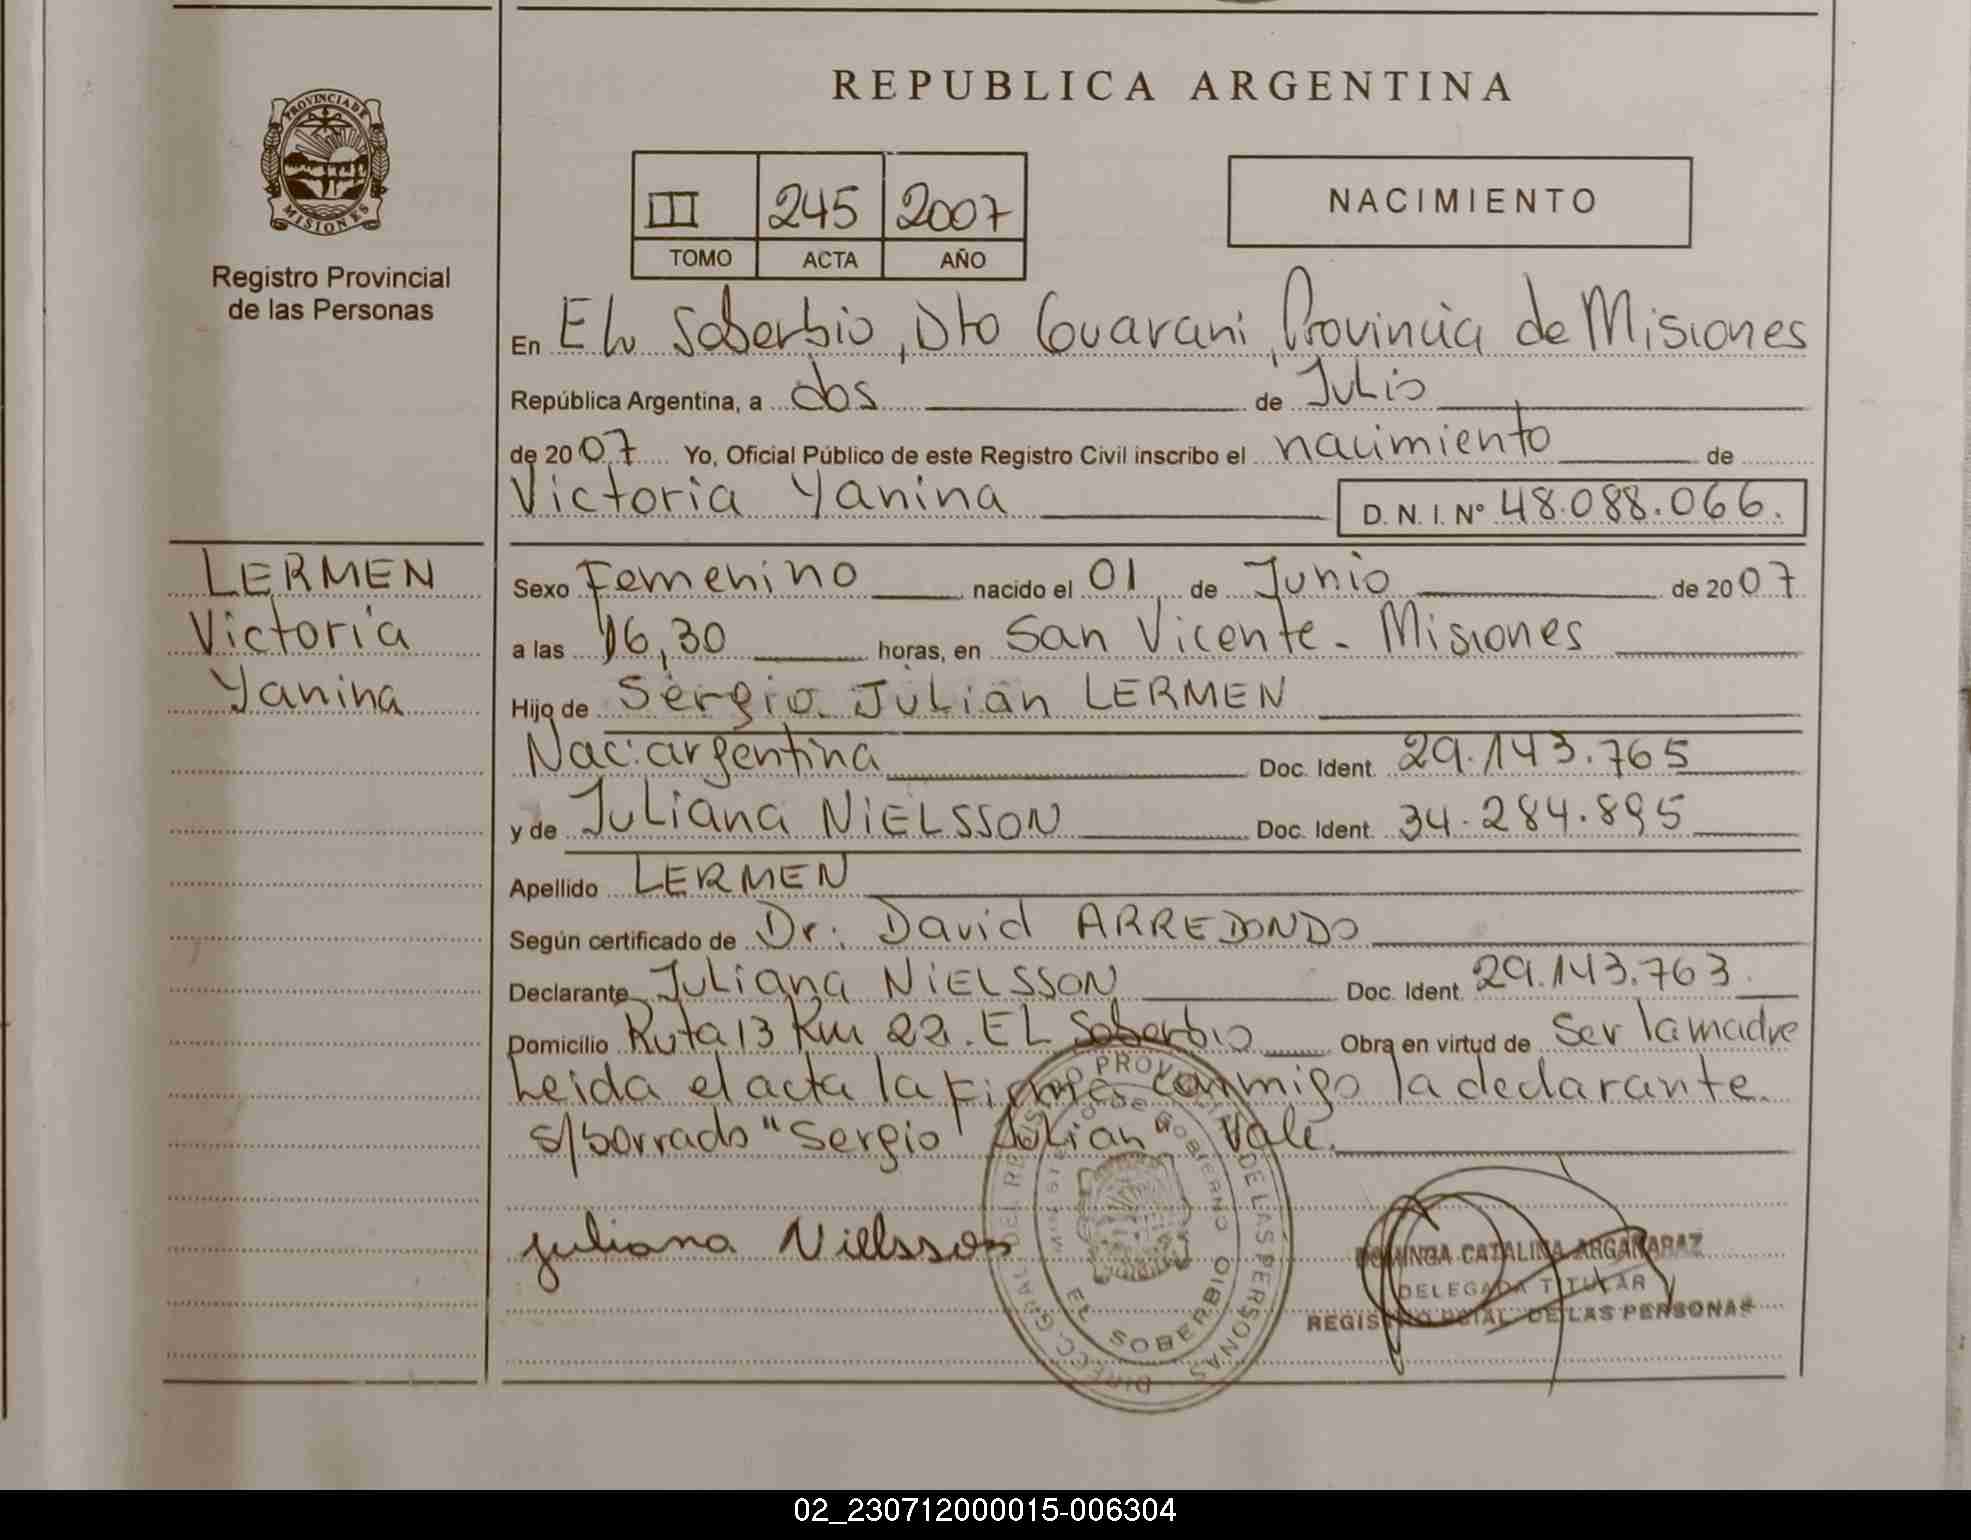 REPUBLICA ARGENTINA
PROVINCIA DE
MISIONES
Registro Provincial
de las Personas
III 245 2007
TOMO ACTA AÑO
NACIMIENTO
En EL Soberbio, Dto Guarani, Provincia de Misiones
República Argentina, a dos de Julio
de 2007 Yo, Oficial Público de este Registro Civil inscribo el nacimiento de
Victoria Yanina D.N.I. Nº 48.088.066.
LERMEN
Victoria
Yanina
Sexo Femenino nacido el 01 de Junio de 2007
a las 16,30 horas, en San Vicente - Misiones
Hijo de Sergio Julián LERMEN
Nac: argentina Doc. Ident. 29.143.765
y de Juliana NIELSSON Doc. Ident. 34.284.895
Apellido LERMEN
Según certificado de Dr. David ARREDONDO
Declarante Juliana NIELSSON Doc. Ident. 29.143.763
Domicilio Ruta 13 Km 22. EL Soberbio Obra en virtud de Ser la madre
Leida el acta la firma conmigo la declarante.
s/borrado "Sergio Julian" Vale.
juliana Nielsson
DIRECC. GRAL. DEL REGISTRO PROVINCIAL DE LAS PERSONAS
MINISTERIO DE GOBIERNO
EL SOBERBIO
DOMINGA CATALINA ARGAÑARAZ
DELEGADA TITULAR
REGISTRO PCIAL. DE LAS PERSONAS
02_230712000015-006304